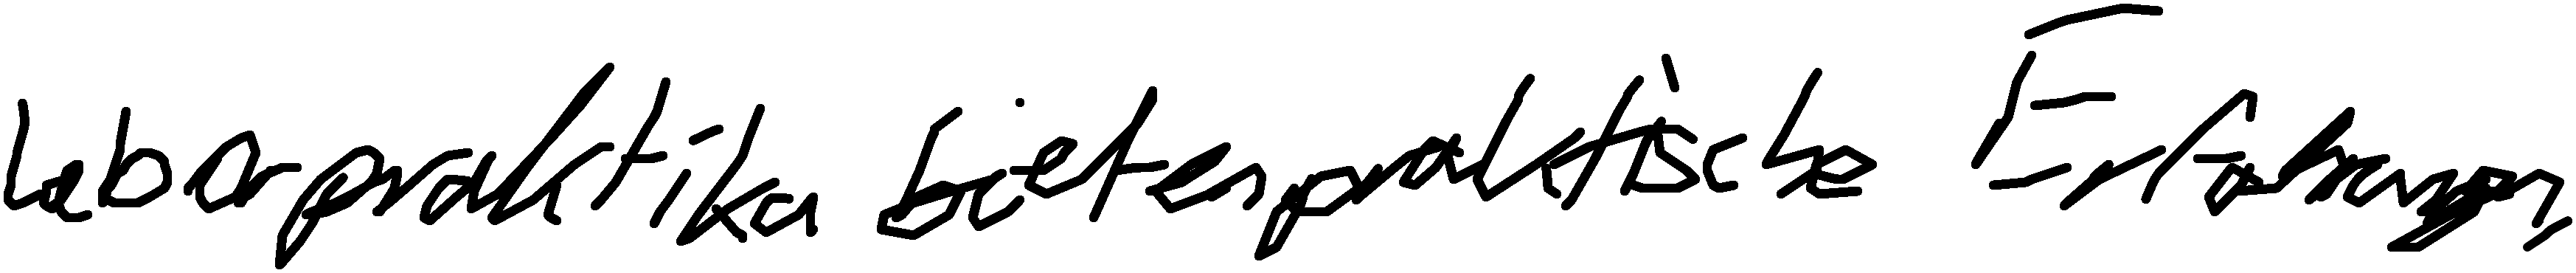 Laborpraktika bieten praktische Erfahrungen,